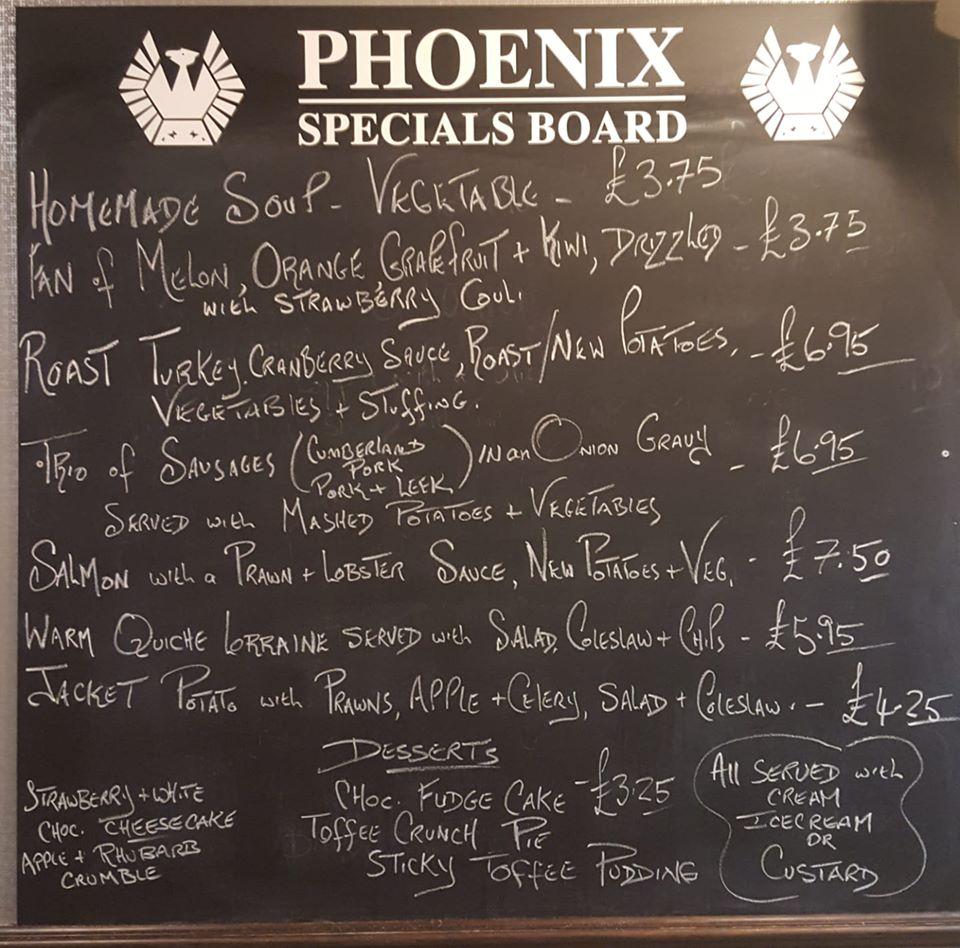 PHOENIX
SPECIALS BOARD
HOMEMADE SOUP - VEGETABLE - £3.75
FAN of MELON, ORANGE, GRAPEFRUIT + KIWI, DRIZZLED - £3.75
with STRAWBERRY COULI
ROAST TURKEY, CRANBERRY SAUCE, ROAST/NEW POTATOES, - £6.95
VEGETABLES + STUFFING.
TRIO of SAUSAGES (CUMBERLAND
PORK
PORK + LEEK) IN an ONION GRAVY - £6.95
SERVED with MASHED POTATOES + VEGETABLES
SALMON with a PRAWN + LOBSTER SAUCE, NEW POTATOES + VEG, - £7.50
WARM QUICHE LORRAINE SERVED with SALAD, COLESLAW + CHIPS - £5.95
JACKET POTATO with PRAWNS, APPLE + CELERY, SALAD + COLESLAW. - £4.25
DESSERTS
STRAWBERRY + WHITE
CHOC. CHEESECAKE
APPLE + RHUBARB
CRUMBLE
CHOC. FUDGE CAKE - £3.25
TOFFEE CRUNCH PIE
STICKY TOFFEE PUDDING
All SERVED with
CREAM
ICECREAM
OR
CUSTARD